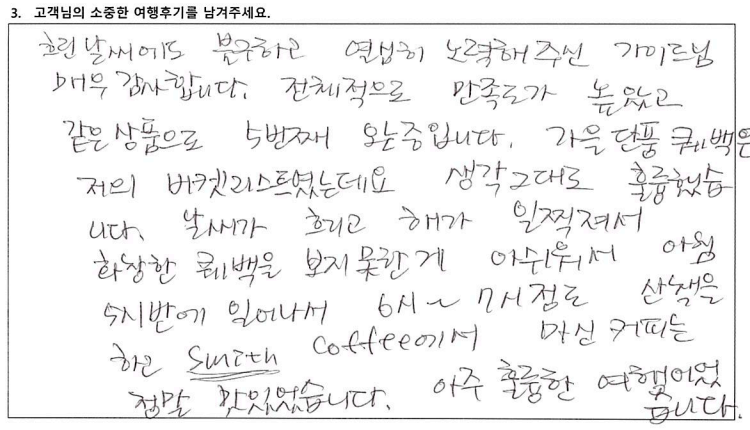 3. 고객님의 소중한 여행후기를 남겨주세요.
흐린 날씨에도 불구하고 열심히 노력해 주신 가이드님
매우 감사합니다. 전체적으로 만족도가 높았고
같은 상품으로 5번째 오는중입니다. 가을 단풍 퀘백은
저의 버켓리스트였는데요 생각 그대로 훌륭했습
니다. 날씨가 흐리고 해가 일찍져서
화창한 퀘백을 보지 못한게 아쉬워서 아침
5시반에 일어나서 6시~7시정도 산책을
하고 Smith Coffee에서 마신 커피는
정말 맛있었습니다. 아주 훌륭한 여행이었
습니다.